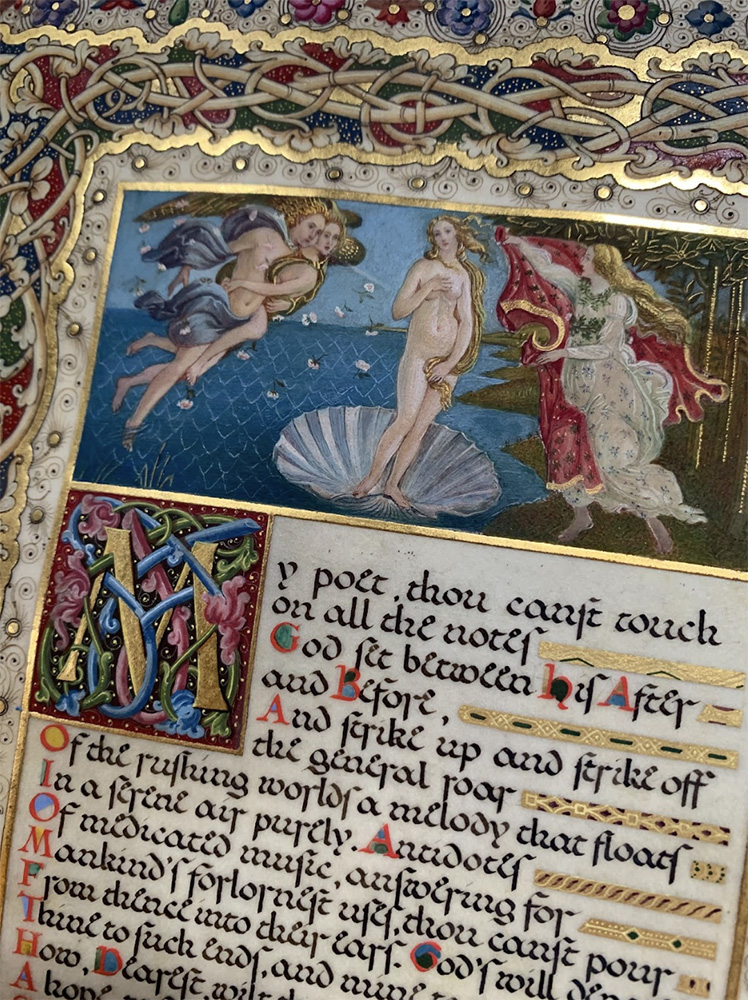 My poet, thou canst touch
on all the notes
God set between his After
and Before,
And strike up and strike off
the general roar
Of the rushing worlds a melody that floats
In a serene air purely. Antidotes
Of medicated music, answering for
Mankind's forlornest uses, thou canst pour
From thence into their ears. God's will de
Thine to such ends, and mine
How, Dearest, wilt
A hope